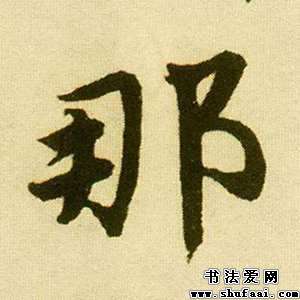 那
书法爱网
www.shufaai.com